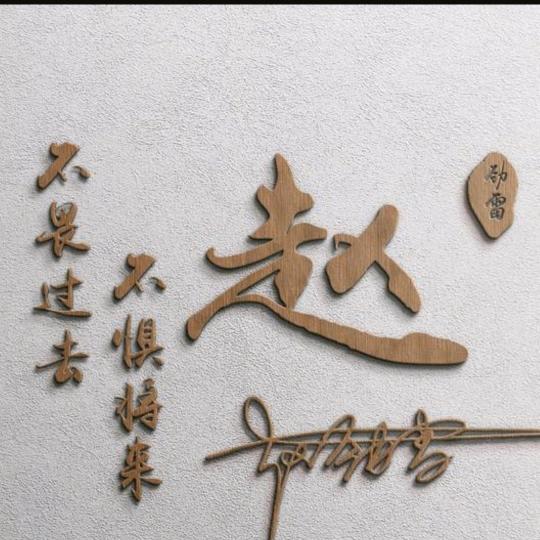 不畏过去
不惧将来
赵
劲雷